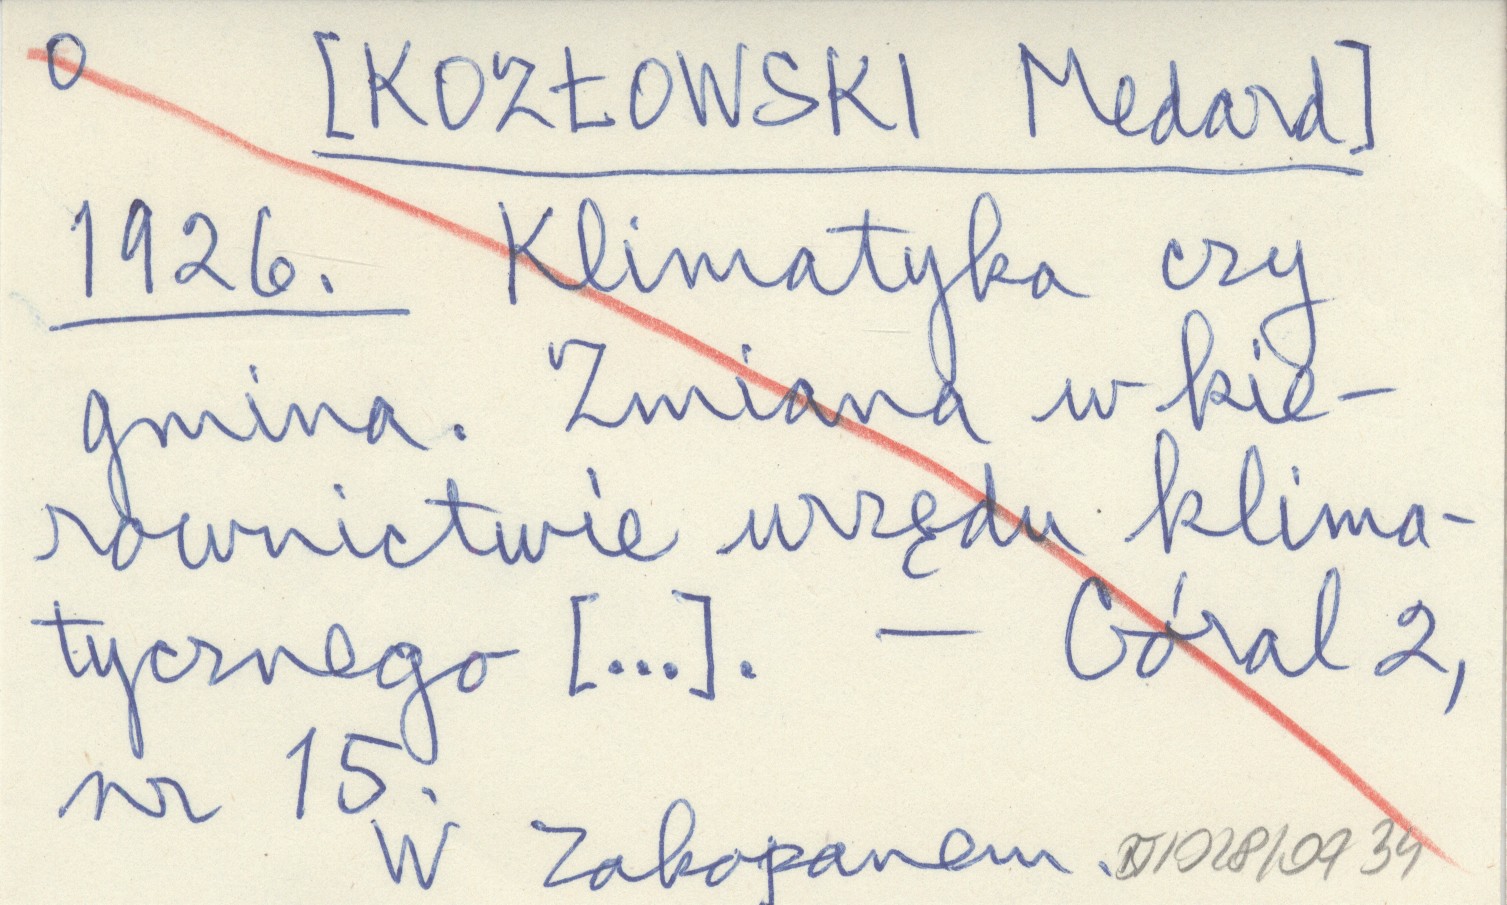 o [KOZŁOWSKI Medard]
1926. Klimatyka czy
gmina. Zmiana w kie-
rownictwie urzędu klima-
tycznego [...]. — Góral 2,
nr 15.
W Zakopanem.